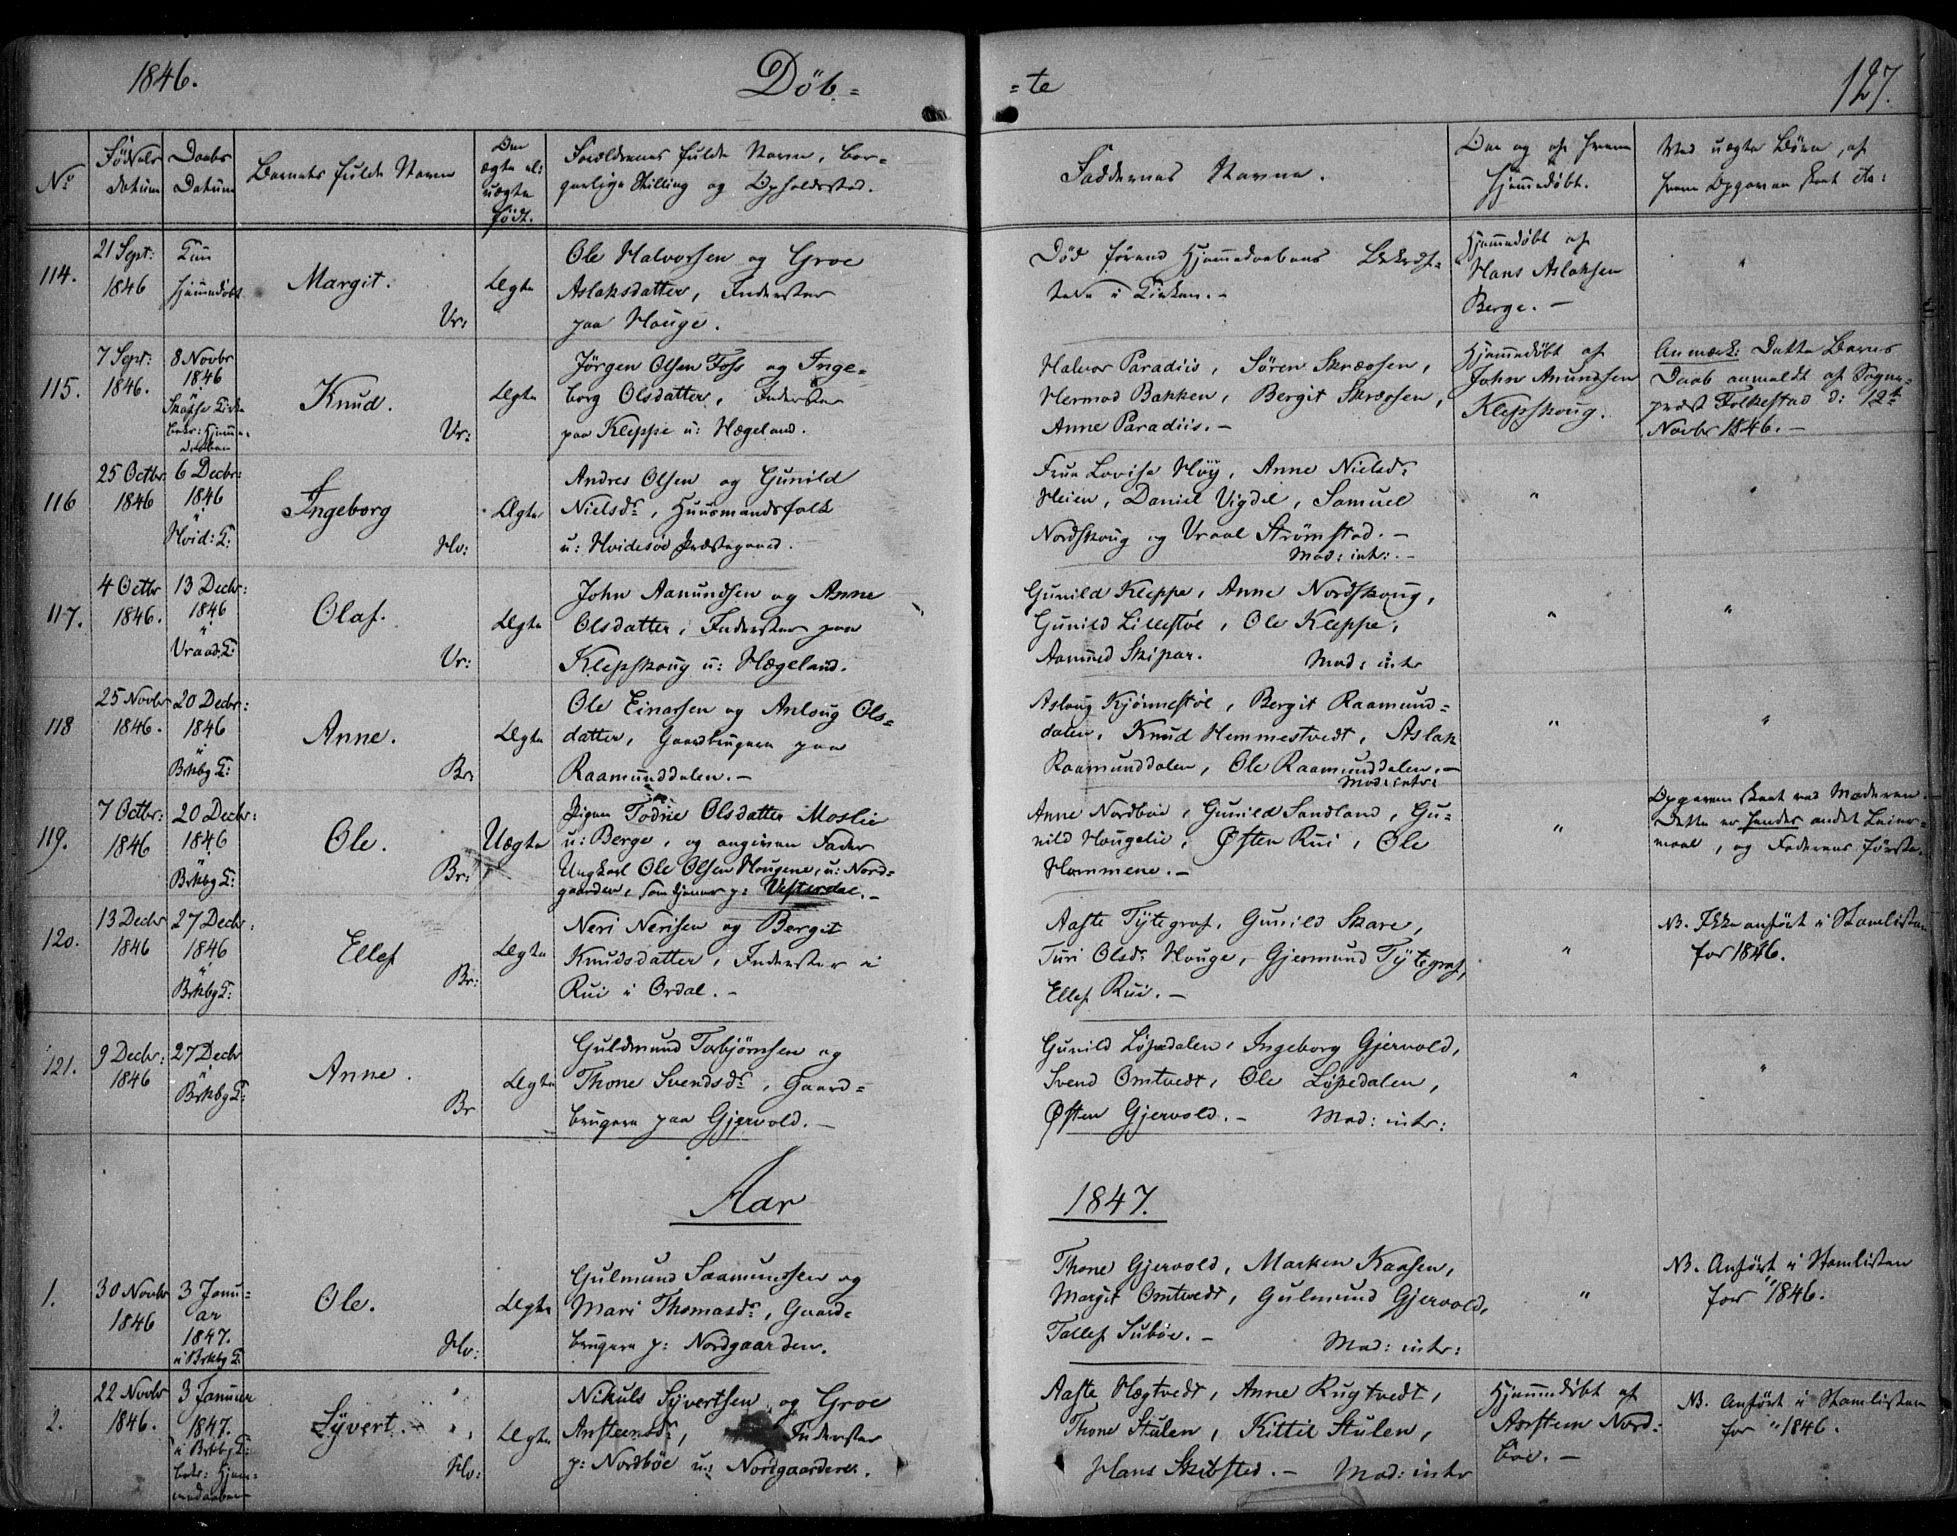 1846.
Döb-
-te
127.
No
Fødsels
datum
Daabs
Datum
Barnets fulde Navn
Om
ægte el:
uægte
født.
Forældrenes fulde Navn, bor-
gerlige Stilling og Opholdssted.
Faddernes Navne.
Om og af hvem
hjemmedøbt.
Ved uægte Børn, af
hvem Opgaven skeet etc:
114.
21 Sept:
1846
Kun
hjemmedøbt
Margit.
Vr:
Ægte
Ole Halvorsen og Groe
Aslaksdatter, Inderster
paa Houge.
Død førend Hjemmedaabens Bekræft-
telse i Kirken. -
Hjemmedøbt af
Hans Aslaksen
Berge. -
"
115.
7 Sept:
1846.
8 Novbr
1846
Skafse Kirke
bekr: Hjemme-
daaben
Knud.
Vr:
Ægte
Jörgen Olsen Foss og Inge-
borg Olsdatter, Inderster
paa Kleppe u: Hægeland.
Halvor Paradiis, Sören Skræosen,
Hermod Bakken, Bergit Skræosen,
Anne Paradiis. -
Hjemmedøbt af
John Anundsen
Klepskoug.
Anmærk: Dette Barns
Daab anmeldt af Sogne-
præst Folkestad d: 12te
Novbr 1846. -
116
25 Octbr
1846
6 Decbr:
1846
i
Hvid: K:
Ingeborg
Hv:
Ægte
Andres Olsen og Gunild
Nielsdr, Huusmandsfolk
u: Hvidesøe Præstegaard.
Frue Lovise Høy, Anne Nielsdr
Heien, Daniel Vigdal, Samuel
Nordskoug og Vraal Strømstad. -
Mod: intr: -
"
"
117.
4 Octbr
1846.
13 Decbr:
1846
i
Vraad: K:
Olaf.
Vr:
Ægte
John Aanundsen og Anne
Olsdatter, Inderster paa
Klepskoug u: Hægeland.
Gunild Kleppe, Anne Nordskoug,
Gunild Lillestøe, Ole Kleppe,
Aanund Skipar. Mod: intr
"
"
118
25 Novbr
1846.
20 Decbr:
1846
i
Brkbg K:
Anne.
Br:
Ægte
Ole Einarsen og Anlaug Ols-
datter, Gaardbrugere paa
Raamunddalen. -
Aslaug Kjønnestøe, Bergit Raamund-
dalen, Knud Hemmestvedt, Aslak
Raamunddalen, Ole Raamunddalen. -
Mod: intr:
"
"
119.
7 Octbr:
1846
20 Decbr:
1846
i
Brkbg K:
Ole.
Br:
Uægte
Pigen Todne Olsdatter Moslie
u: Berge, og angiven Fader
Ungkarl Ole Olsen Hougene, u: Nord-
gaarden, som tjener p: Vesterdal. -
Anne Nordbøe, Gunild Sandland, Gu-
nild Hougelie, Østen Rui, Ole
Hommene. -
"
Opgaven skeet ved Moderen.
Dette er hendes andet Leier-
maal, og Faderens første.
120.
13 Decbr
1846
27 Decbr:
1846
i
Brkbg K:
Ellef
Br:
Ægte
Neri Nerisen og Bergit
Knudsdatter, Inderster i
Rui i Ordal. -
Aaste Tytegraf, Gunild Skare,
Turi Olsdr Houge, Gjermund Tytegraf,
Ellef Rui. -
"
NB. Ikke anført i Stamlisten
for 1846.
121.
9 Decbr:
1846
27 Decbr
i
Brkbg K:
Anne.
Br
Ægte
Guldmund Torbjørnsen og
Thone Svendsdr, Gaard-
brugere paa Gjervold. -
Gunild Løpedalen, Ingeborg Gjervold,
Svend Omtvedt, Ole Løpedalen,
Østen Gjervold. - Mod: intr:
"
"
Aar
1847.
1.
30 Novbr
1846
3 Janu-
ar
1847.
i Brkbg K:
Ole.
Hv:
Ægte
Gulmund Saamundsen og
Mari Thomasdr, Gaard-
brugere p: Nordgaarden.
Thone Gjervold, Marken Kaasen,
Margit Omtvedt, Gulmund Gjervold,
Tallef Subøe. - Mod: intr:
"
NB. Anført i Stamlisten
for 1846.
2.
22 Novbr
1846.
3 Januar
1847.
i Brkbg K:
bekr: Hjem-
medaaben
Syvert.
Hv:
Ægte
Nikuls Syvertsen og Groe
Ansteensdr, Inderster
p: Nordbøe u: Nordgaarden.
Aaste Hægtvedt, Anne Rugtvedt,
Thone Stulen, Kittil Stulen,
Hans Skibsted. - Mod: intr
Hjemmedøbt af
Aasteen Nord-
bøe. -
NB. Anført i Stamlisten
for 1846.